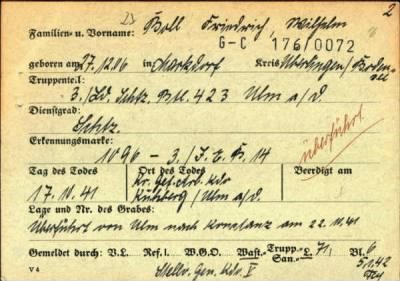 23 2
Familien- u. Vorname: Boll Friedrich, Wilhelm
G-C 176/0072
geboren am 27.12.06 in Markdorf Kreis Überlingen/Boden-
see
Truppenteil:
3./Ld. Schtz. Btl. 423 Ulm a/d.
Dienstgrad:
Schtz.
Erkennungsmarke:
1096 - 3./J. E. B. 14
überführt
Tag des Todes Ort des Todes Beerdigt am
17.10.41 Kr. Gef. Arb. Kdo
Kuhberg / Ulm a/d.
Lage und Nr. des Grabes:
Überführt von Ulm nach Konstanz am 22.10.41
Gemeldet durch: V.L. Ref. I. W.G.O. Wast.- Trupp.- L. 71, Bl. 6
San.-
V 4 Stellv. Gen. Kdo. V 5.1.42